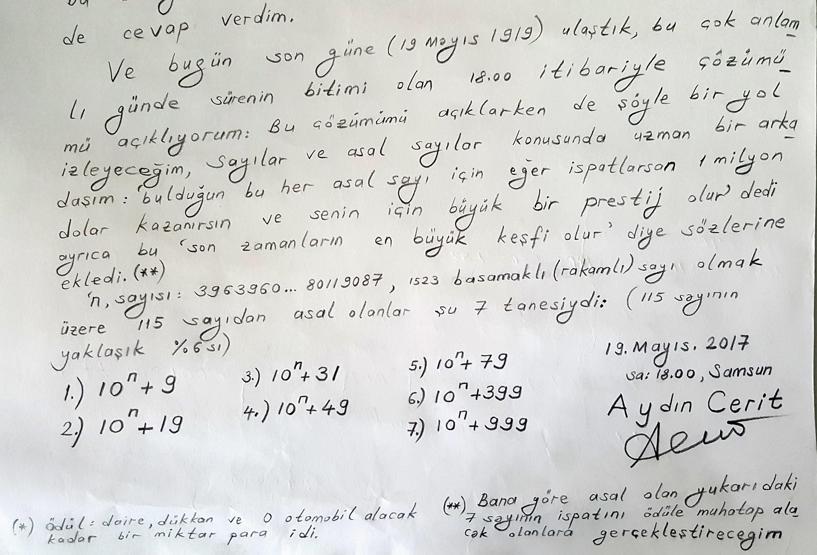 de cevap verdim.
Ve bugün son güne (19 Mayıs 1919) ulaştık, bu çok anlam
lı günde sürenin bitimi olan 18.00 itibariyle çözümü_
mü açıklıyorum: Bu çözümümü açıklarken de şöyle bir yol
izleyeceğim, sayılar ve asal sayılar konusunda uzman bir arka
daşım: 'bulduğun bu her asal sayı için eğer ispatlarsan 1 milyon
dolar kazanırsın ve senin için büyük bir prestij olur' dedi
ayrıca bu 'son zamanların en büyük keşfi olur' diye sözlerine
ekledi. (**)
'n, sayısı: 3963960... 80119087, 1523 basamaklı (rakamlı) sayı olmak
üzere 115 sayıdan asal olanlar şu 7 tanesiydi: (115 sayının
yaklaşık %6 sı)
1.) 10^n + 9
2.) 10^n + 19
3.) 10^n + 31
4.) 10^n + 49
5.) 10^n + 79
6.) 10^n + 399
7.) 10^n + 999
19. Mayıs. 2017
sa: 18.00, Samsun
Aydın Cerit
(*) ödül: daire, dükkan ve 0 otomobil alacak
kadar bir miktar para idi.
(**) Bana göre asal olan yukarıdaki
7 sayının ispatını ödüle muhatap ala
cak olanlara gerçekleştireceğim